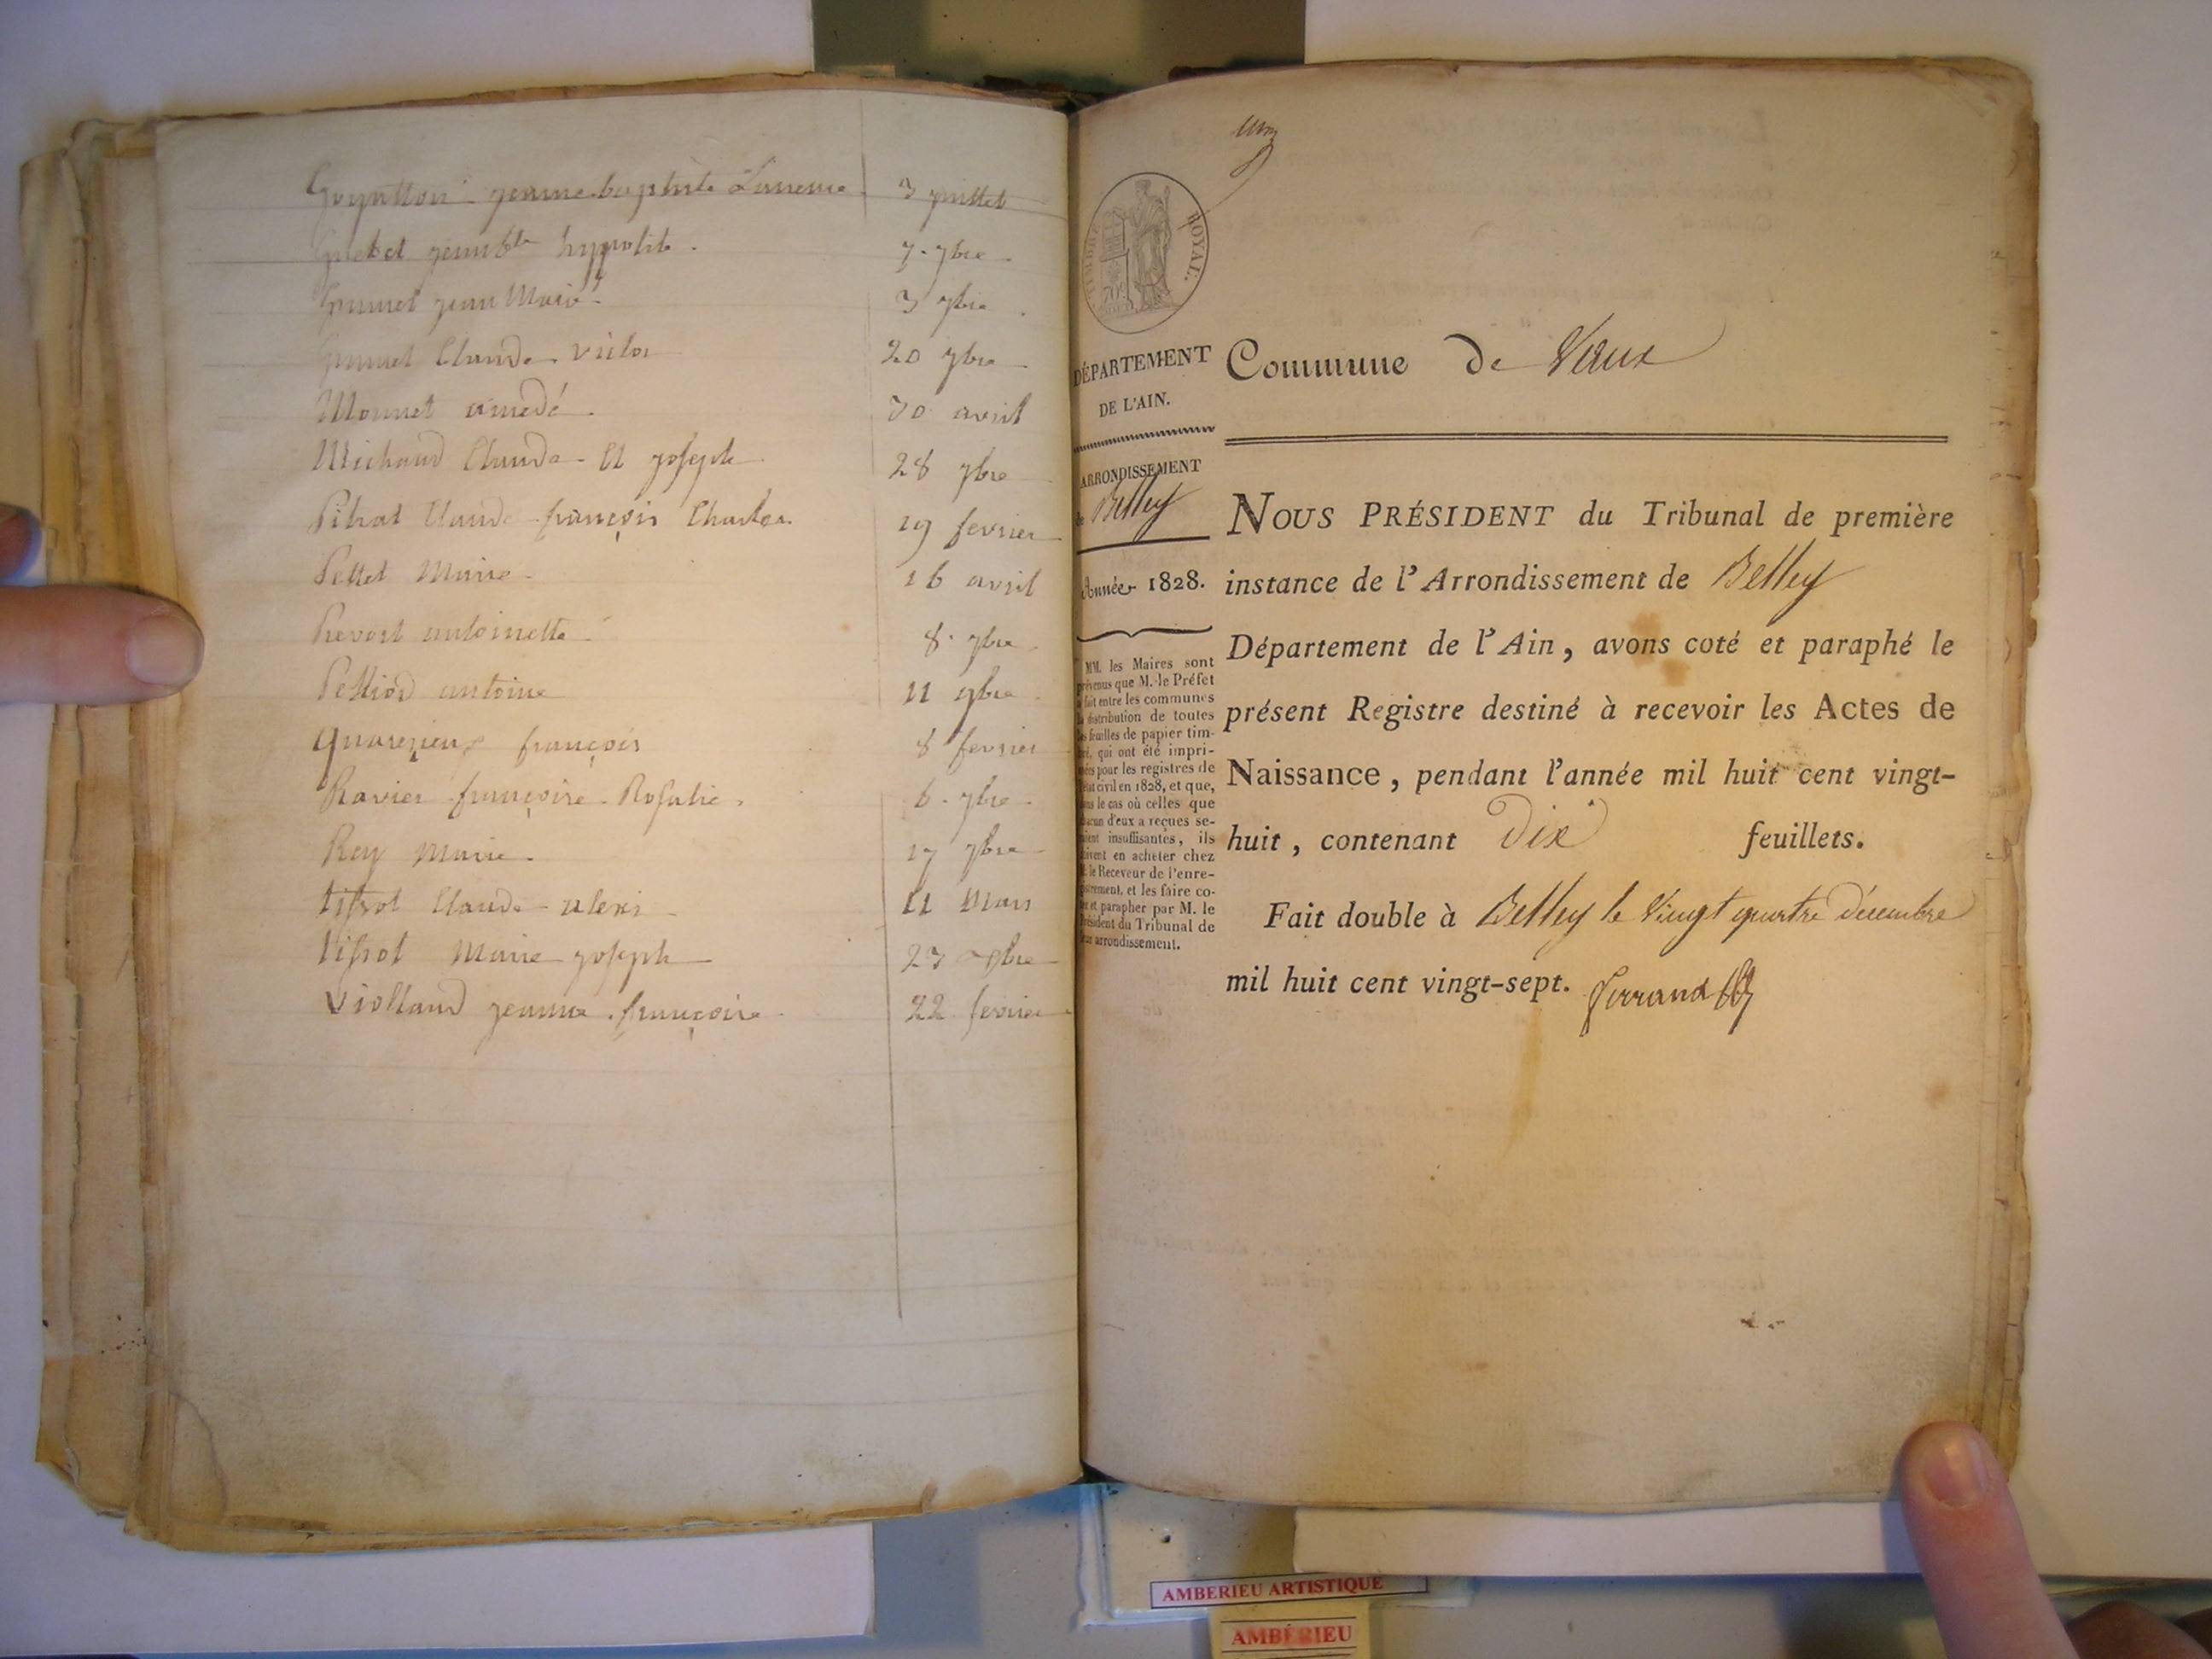 jeanne baptiste 3 juillet
hyppolite. 7. 7bre.
jean Marie 3 7bre.
Claude victor 20 7bre
Monnet amedé. 30 avril
Michaud Claude et joseph 28 7bre
Pitrat Claude françois Charles. 19 fevrier
Pettet Marie. 16 avril
Revort antoinette. 8. 7bre.
antoine 11 9bre.
françois 8 fevrier
Ravier françoise Rosalie. 6. 7bre.
Rey Marie. 17 7bre
tissot Claude alexis 11 Mars
tissot Marie joseph 23
Violland jeanne françoise. 22 fevrier
un
TIMBRE ROYAL.
70
DÉPARTEMENT
DE L'AIN.
ARRONDISSEMENT
de Belley
Année 1828.
MM. les Maires sont
prévenus que M. le Préfet
a fait entre les communes
la distribution de toutes
les feuilles de papier tim-
bré, qui ont été impri-
mées pour les registres de
l'état civil en 1828, et que,
dans le cas où celles que
chacun d'eux a reçues se-
raient insuffisantes, ils
doivent en acheter chez
M. le Receveur de l'enre-
gistrement, et les faire co-
ter et parapher par M. le
Président du Tribunal de
leur arrondissement.
Commune de Vaux
NOUS PRÉSIDENT du Tribunal de première
instance de l'Arrondissement de Belley
Département de l'Ain, avons coté et paraphé le
présent Registre destiné à recevoir les Actes de
Naissance, pendant l'année mil huit cent vingt-
huit, contenant Dix feuillets.
Fait double à Belley le Vingt quatre décembre
mil huit cent vingt-sept.
AMBERIEU ARTISTIQUE
AMBÉRIEU